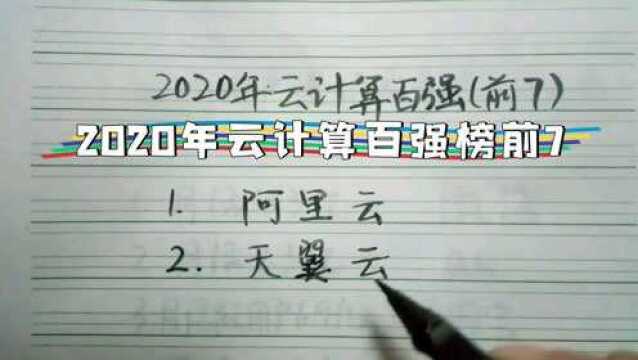 2020年云计算百强(前7)
2020年云计算百强榜前7
1. 阿里云
2. 天翼云